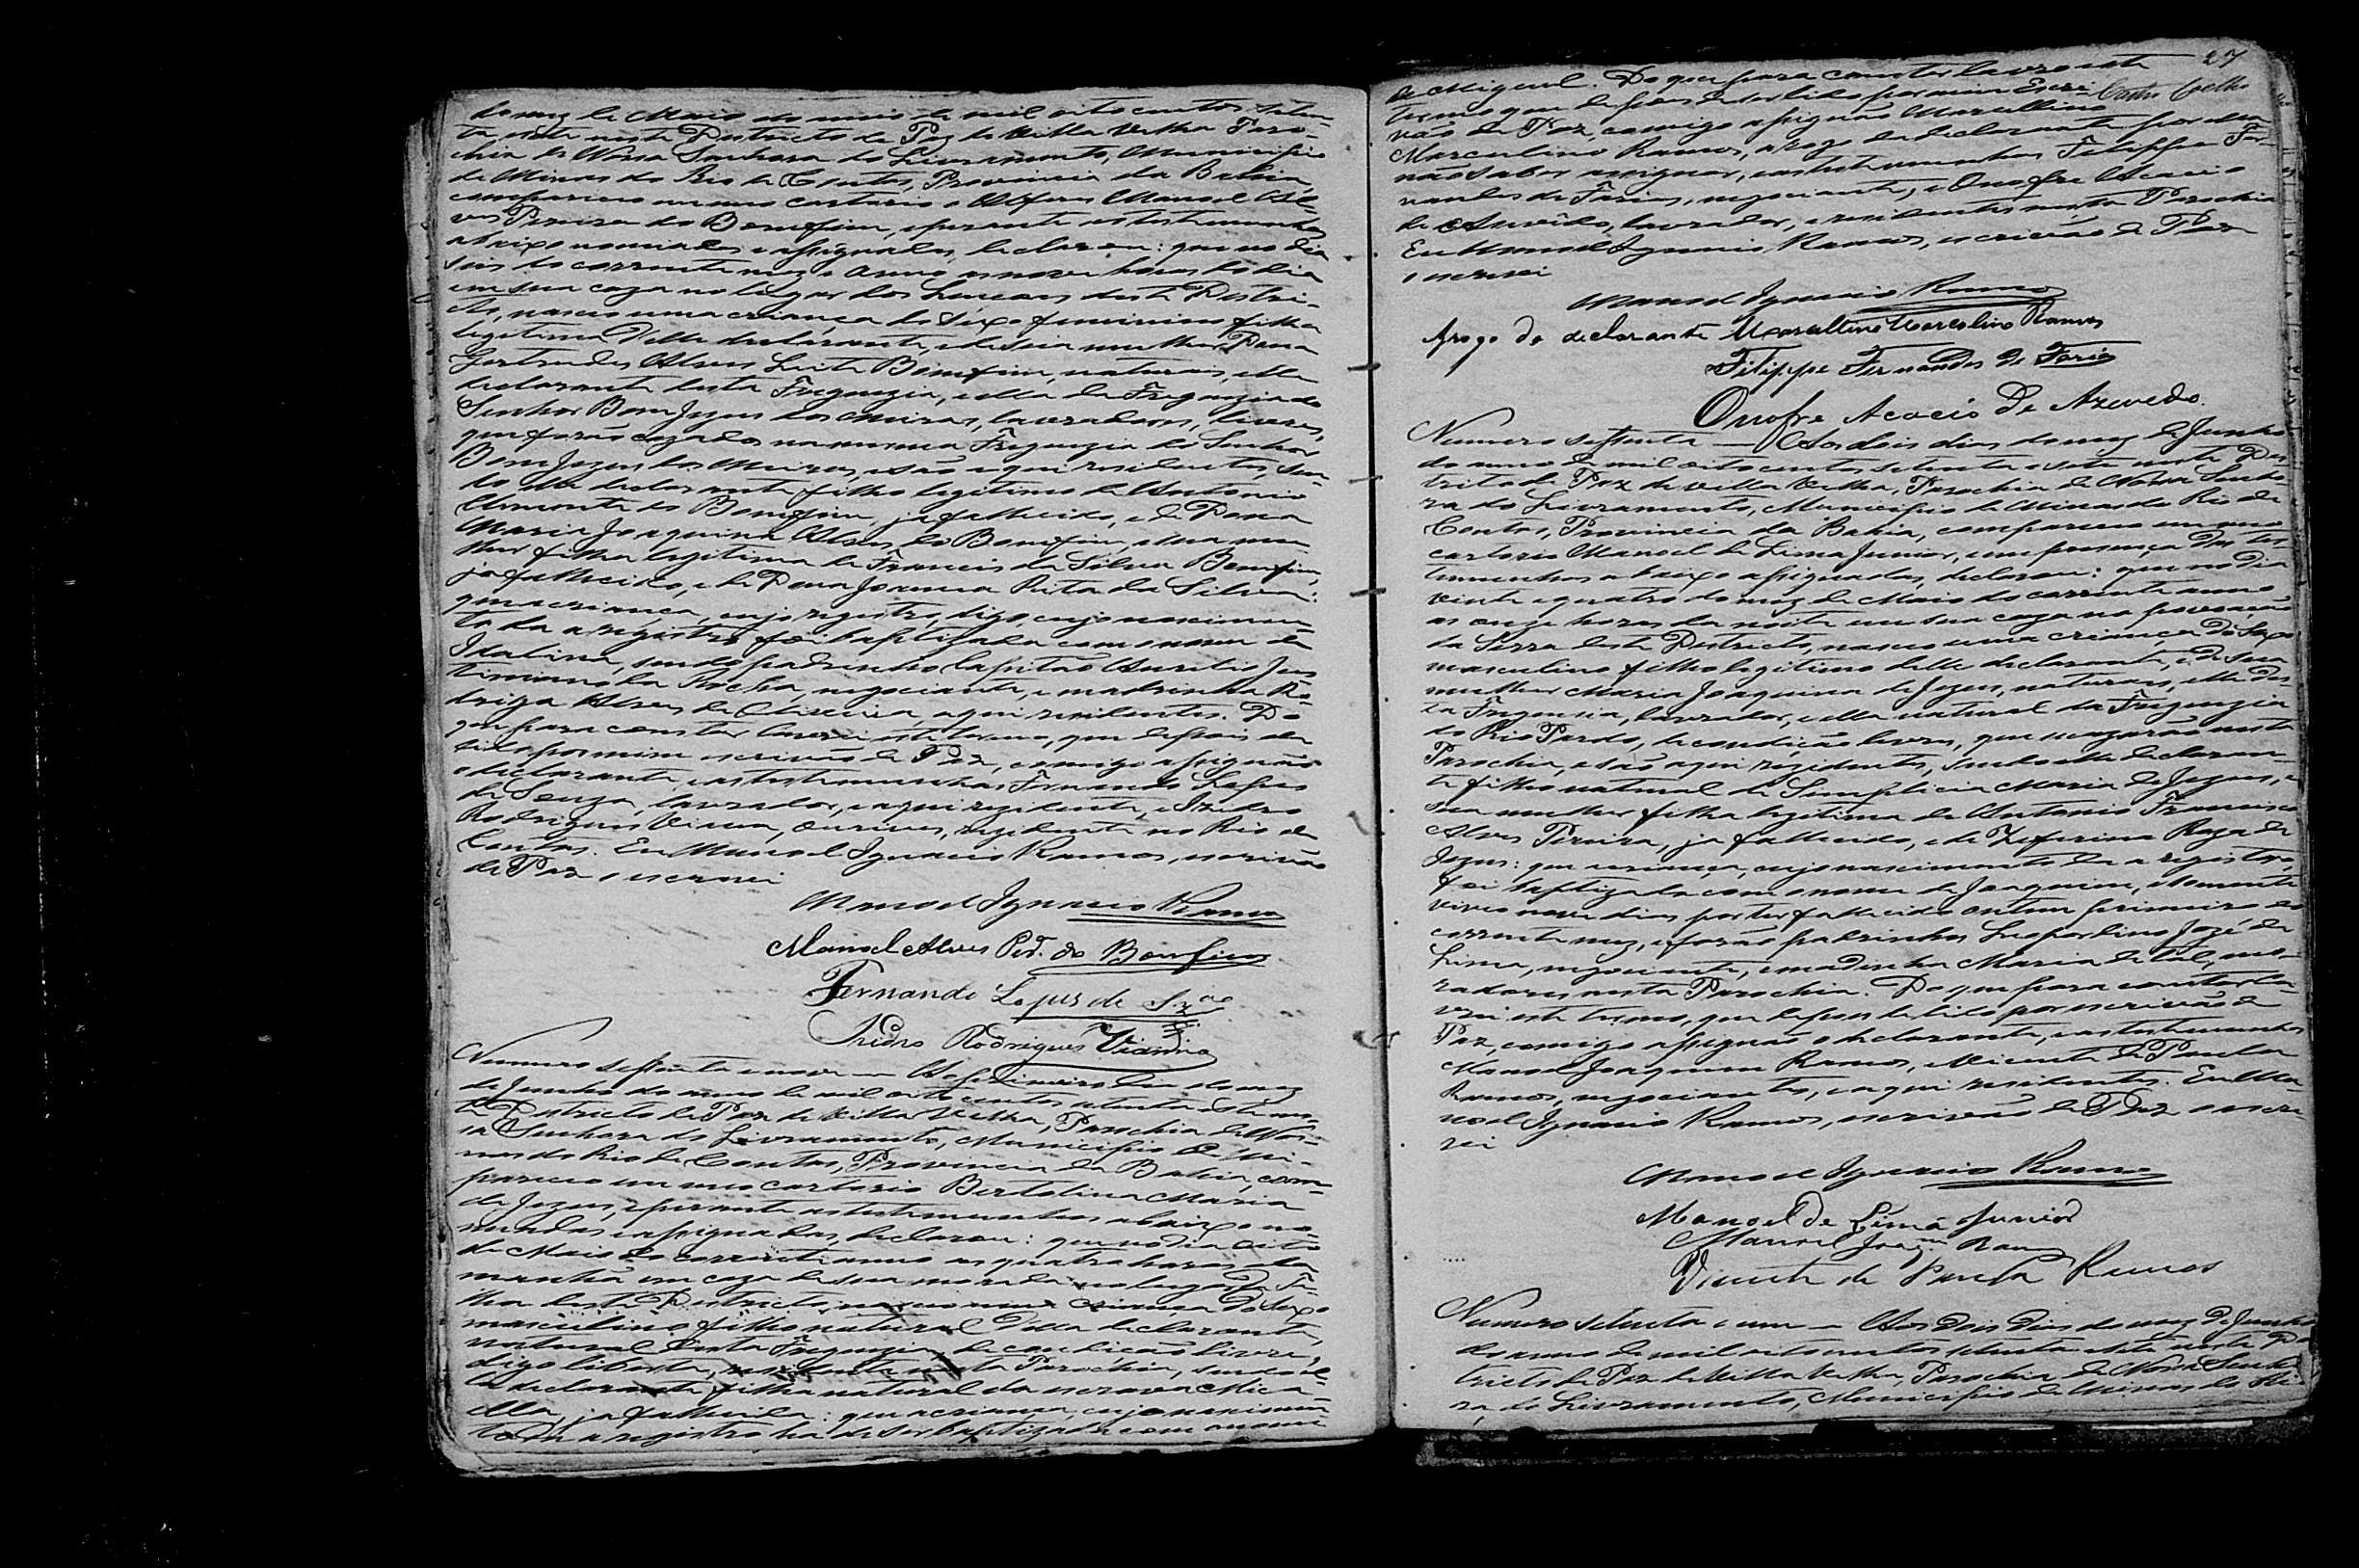 do mez de Maio do anno de mil oito centos seten-
ta e sete neste Districto de Paz de Villa Velha Paro-
chia de Nossa Senhora do Livramento, Municipio
de Minas do Rio de Contas, Provincia da Bahia,
compareceo em meo cartorio o Alferes Manoel Al-
ves Pereira do Bomfim, e perante as testemunhas
abaixo nomiadas e assignadas, declarou: que no dia
seis do corrente mez e anno as nove horas do dia
em sua caza no lugar dos deste Distri-
cto, nasceo uma criança do sexo feminino filha
legitima delle declarante, e de sua mulher Dona
Gertrudes Alves Leite Bomfim, naturais, elle
declarante desta Freguezia, e ella da Freguezia do
Senhor Bom Jezus dos Meiras, lavradores, livres,
que forão cazados na mesma Freguezia do Senhor
Bom Jezus dos Meiras, e são aqui residentes, sen-
do elle declarante filho legitimo de Antonio
do Bomfim, ja fallecido, e de Dona
Maria Joaquina Alves do Bomfim, e sua mu-
lher filha legitima de Francis da Silva Bomfim,
ja fallecido, e de Dona Joanna Rita da Silva:
que a criança, cujo registro, digo, cujo nascimen-
to da a registro foi baptizada com o nome de
Idalina, sendo padrinho Capitão Aurelio Jus
tiniano da Rocha, negociante, e madrinha Ro-
driga Alves de Oliveira, aqui residentes. Do
que para constar lavrei este termo, que depois de
lido por mim escrivão de Paz, comigo assignão
o declarante e as testemunhas Fernando Lopes
de Souza, lavrador, e aqui rezidente, e Izidro
Rodrigues Vianna, ourives, rezidente no Rio de
Contas. Eu Manoel Ignacio Ramos, escrivão
de Paz o escrevi
Manoel Ignacio Ramos
Manoel Alves Per.ª do Bomfim
Fernando Lopes de Sz.ª
Izidro Rodrigues Vianna
Numero sessenta e nove — Ao primeiro dia do mez
de Junho do anno de mil oito centos setenta e sete nes-
te Districto de Paz de Villa Velha, Parochia de Nos-
sa Senhora do Livramento, Municipio de Mi-
nas do Rio de Contas, Provincia da Bahia, com-
pareceo em meo cartorio Bertolina Maria
de Jezus, e perante as testemunhas abaixo no-
meadas e assignadas, declarou: que no dia oito
de Maio do corrente anno as quatro horas da
manhã em caza de sua morada no lugar da
deste Districto, nasceo uma criança do sexo
masculino filho natural della declarante,
natural desta Freguezia, de condicão livre,
digo liberta, rezidente nesta Parochia, sendo el-
la declarante filha natural da escrava Mica-
ella, ja fallecida: que a criança, cujo nascimen-
to da a registro ha de ser baptizada com o nome
27
Castro Coelho
de Miguel. Do que para constar lavro este
termo que depois de ser lido por mim Escri-
vão de Paz, comigo assignão Marcellino
Marculino Ramos, a rogo da declarante por ella
não saber assignar, e as testemunhas Filippe Fer-
nandes de Farias, negociante, e Onofre Acacio
de Azevêdo, lavrador, e residentes nesta Parochia
Eu Manoel Ignacio Ramos, escrivão de Paz
o escrevi
Manoel Ignacio Ramos
Arogo da declarante Marcellino Marcolino Ramos
Filippe Fernandes de Faria
Onofre Acacio de Azevedo.
Numero setenta — Aos dois dias do mez de Junho
do anno de mil oito centos setenta e sete neste Dis-
tricto de Paz de Villa Velha, Parochia de Nossa Senho-
ra do Livramento, Municipio de Minas do Rio de
Contas, Provincia da Bahia, compareceo em meo
cartorio Manoel de Lima Junior, e em presença das tes-
temunhas abaixo assignadas, declarou: que no dia
vinte e quatro do mez de Maio do corrente anno
as onze horas da noite em sua caza na povoação
da Serra deste Districto, nasceo uma criança do sexo
masculino filho legitimo delle declarante, e de sua
mulher Maria Joaquina de Jezus, naturaes, elle des-
ta Freguezia, lavrador, e ella natural da Freguezia
do Rio Pardo, de condicão livres, que se cazarão nesta
Parochia, e são aqui rezidentes, sendo elle declaran-
te filho natural de Simplicia Maria de Jezus, e
sua mulher filha legitima de Antonio Francisco
Alves Pereira, ja fallecido, e de Zeferina Roza de
Jezus: que a criança, cujo nascimento da a registro,
foi baptizada com o nome de Joaquim, e somente
viveo nove dias por ter fallecido ontem primeiro do
corrente mez, e forão padrinhos Leopoldino Jozé de
Lima, negociante, e madrinha Maria de tal, mo-
radores nesta Parochia. Do que para constar la-
vrei este termo, que depois de lido por escrivão de
Paz, comigo assignão o declarante, e as testemunhas
Manoel Joaquim Ramos, e Vicente de Paula
Ramos, negociantes, e aqui residentes. Eu Ma-
noel Ignacio Ramos, escrivão de Paz o escre-
vi
Manoel Ignacio Ramos
Manoel de Lima Junior
Manoel Joaq.m Ramos
Vicente de Paula Ramos
Numero setenta e um — Aos dois dias do mez de Junho
do anno de mil oito centos setenta e sete neste Dis-
tricto de Paz de Villa Velha, Parochia de Nossa Senho-
ra do Livramento, Municipio de Minas do Ri-